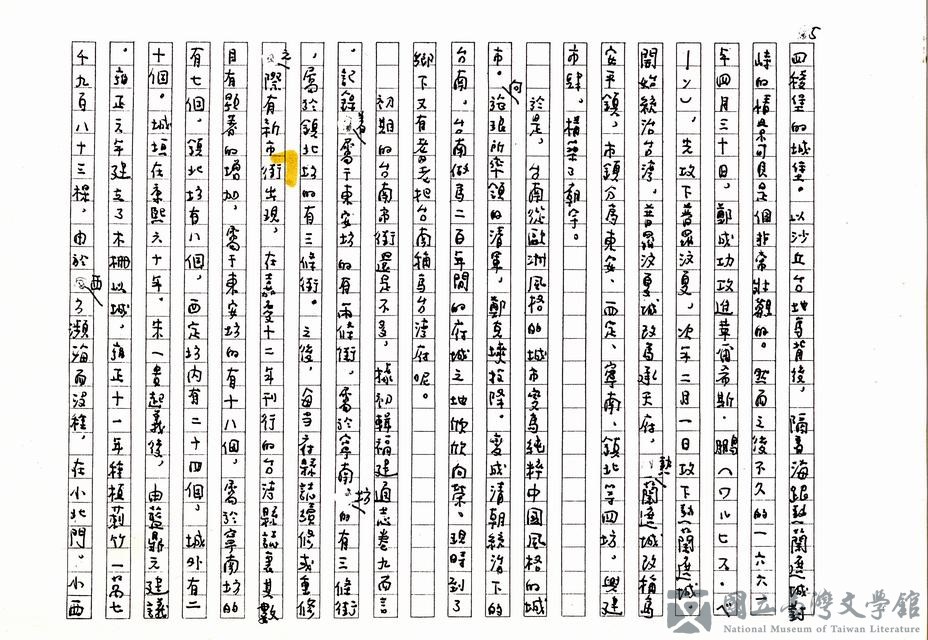 5
四稜堡的城堡。以沙丘台地為背後,隔着海跟熱蘭遮城對
峙的情景可真是個非常壯觀的。然而之後不久的一六六一
年四月三十日,鄭成功攻進華爾希斯.鵬(ワルヒス.ペ
ーン),先攻下普羅汶夏,次年二月一日攻下熱蘭遮城
開始統治台灣,普羅汶夏城改為承天府,熱蘭遮城改稱為
安平鎮,市鎮分為東安、西定、寧南、鎮北等四坊,興建
市肆,構築了朝宇。
於是,台南從歐洲風格的城市變為純粹中國風格的城
市。向施琅所率領的清軍,鄭克塽投降。變成清朝統治下的
台南,台南做為二百年間的府城之地欣欣向榮。現時到了
鄉下又有耆老把台南稱為台灣府呢。
初期的台南市街還是不多,據初輯福建通志卷九而言
。記錄着屬于東安坊的有兩條街,屬於寧南坊的有三條街
,屬於鎮北坊的有三條街。之後,每當府縣誌續修或重修
之際有新市街出現,在嘉慶十二年刊行的台灣縣誌裏其數
目有顯著的增加,屬于東安坊的有十八個,屬於寧南坊的
有七個,鎮北坊有八個,西定坊內有二十四個,城外有二
十個。城垣在康熙六十年。朱一貴起義後,由藍鼎元建議
。雍正元年建立了木柵以城,雍正十一年種植莿竹一萬七
千九百八十三棵,由於西方瀕海而沒種,在小北門。小西
國立台灣文學館
National Museum of Taiwan Literature